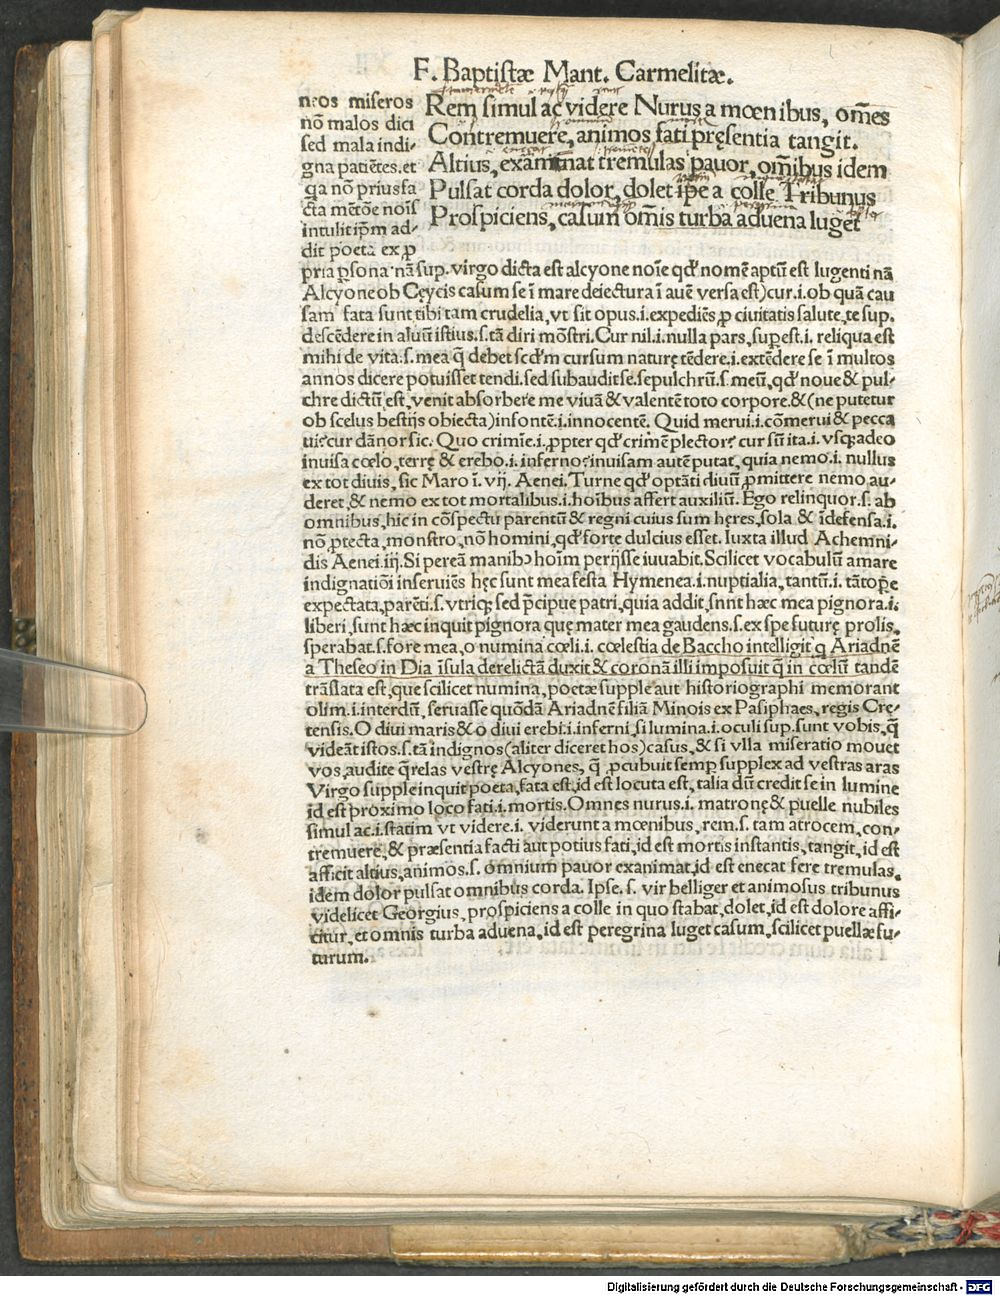 F. Baptistæ Mant. Carmelitæ.
Rem simul ac videre Nurus a mœnibus, om̄es
Contremuere, animos fati pręsentia tangit.
Altius, examinat tremulas pauor, om̄ibus idem
Pulsat corda dolor, dolet ip̄e a colle Tribunus
Prospiciens, casum om̄is turba aduena luget
nos miseros
nō malos dici
sed mala indi-
gna patiētes. et
qa nō prius fa
cta mētōe nois
intulit ip̄m ad-
dit poeta ex ꝓ
pria ꝑsona nā sup. virgo dicta est alcyone noīe qd' nomē aptū est lugenti nā
Alcyone ob Cęycis casum se ī mare deiectura ī auē versa est) cur .i. ob quā cau
sam fata sunt tibi tam crudelia, vt sit opus .i. expediēs ꝓ ciuitatis salute, te sup.
descēdere in aluū istius .s. tā diri mōstri. Cur nil .i. nulla pars, supest .i. reliqua est
mihi de vita .s. mea q̄ debet scd'm cursum naturę tēdere .i. extēdere se ī multos
annos dicere potuisset tendi. sed subaudit se. sepulchrū .s. meū, qd' noue & pul-
chre dictū est, venit absorbere me viuā & valentē toto corpore. & (ne putetur
ob scelus bestijs obiecta) infontē .i. innocentē. Quid merui .i. cōmerui & pecca
ui? cur dānor sic. Quo crimīe .i. ꝓpter qd' crimē plector? cur sū ita .i. vsq; adeo
inuisa cœlo, terrę & erebo .i. inferno? inuisam autē putat, quia nemo .i. nullus
ex tot diuis, sic Maro ī. vij. Aenei. Turne qd' optāti diuū ꝓmittere nemo au-
deret, & nemo ex tot mortalibus .i. hoībus affert auxiliū. Ego relinquor .s. ab
omnibus, hic in cōspectu parentū & regni cuius sum hęres, sola & īdefensa .i.
nō ꝓtecta, monstro, nō homini, qd' forte dulcius esset. Iuxta illud Achemni-
dis Aenei. iij. Si pereā manibꝰ hoīm perijsse iuuabit. Scilicet vocabulū amare
indignatiōi inseruiēs hęc sunt mea festa Hymenea .i. nuptialia, tantū .i. tātop̄e
expectata, parēti .s. vtriq; sed p̄cipue patri, quia addit, snnt hæc mea pignora .i.
liberi, sunt hæc inquit pignora quę mater mea gaudens .s. ex spe futurę prolis,
sperabat .s. fore mea, o numina cœli .i. cœlestia de Baccho intelligit, q Ariadnē
a Theseo in Dia īsula derelictā duxit & coronā illi imposuit q̄ in cœlū tandē
trāslata est, que scilicet numina, poetæ supple aut historiographi memorant
olim .i. interdū, seruasse quōdā Ariadnē filiā Minois ex Pasiphaes, regis Crę-
tensis. O diui maris & o diui erebi .i. inferni, si lumina .i. oculi sup. sunt vobis, q̄
videāt istos .s. tā indignos (aliter diceret hos) casus, & si vlla miseratio mouet
vos, audite q̄relas vestrę Alcyones, q̄ ꝓcubuit semp supplex ad vestras aras
Virgo supple inquit poeta, fata est, id est locuta est, talia dū credit se in lumine
id est proximo loco fati .i. mortis. Omnes nurus .i. matronę & puelle nubiles
simul ac .i. statim vt videre .i. viderunt a mœnibus, rem .s. tam atrocem, con-
tremuere, & præsentia facti aut potius fati, id est mortis instantis, tangit, id est
afficit altius, animos .s. omnium pauor exanimat, id est enecat fere tremulas.
idem dolor pulsat omnibus corda. Ipse .s. vir belliger et animosus tribunus
videlicet Georgius, prospiciens a colle in quo stabat, dolet, id est dolore affi-
citur, et omnis turba aduena, id est peregrina luget casum, scilicet puellæ fu-
turum.
Digitalisierung gefördert durch die Deutsche Forschungsgemeinschaft - DFG